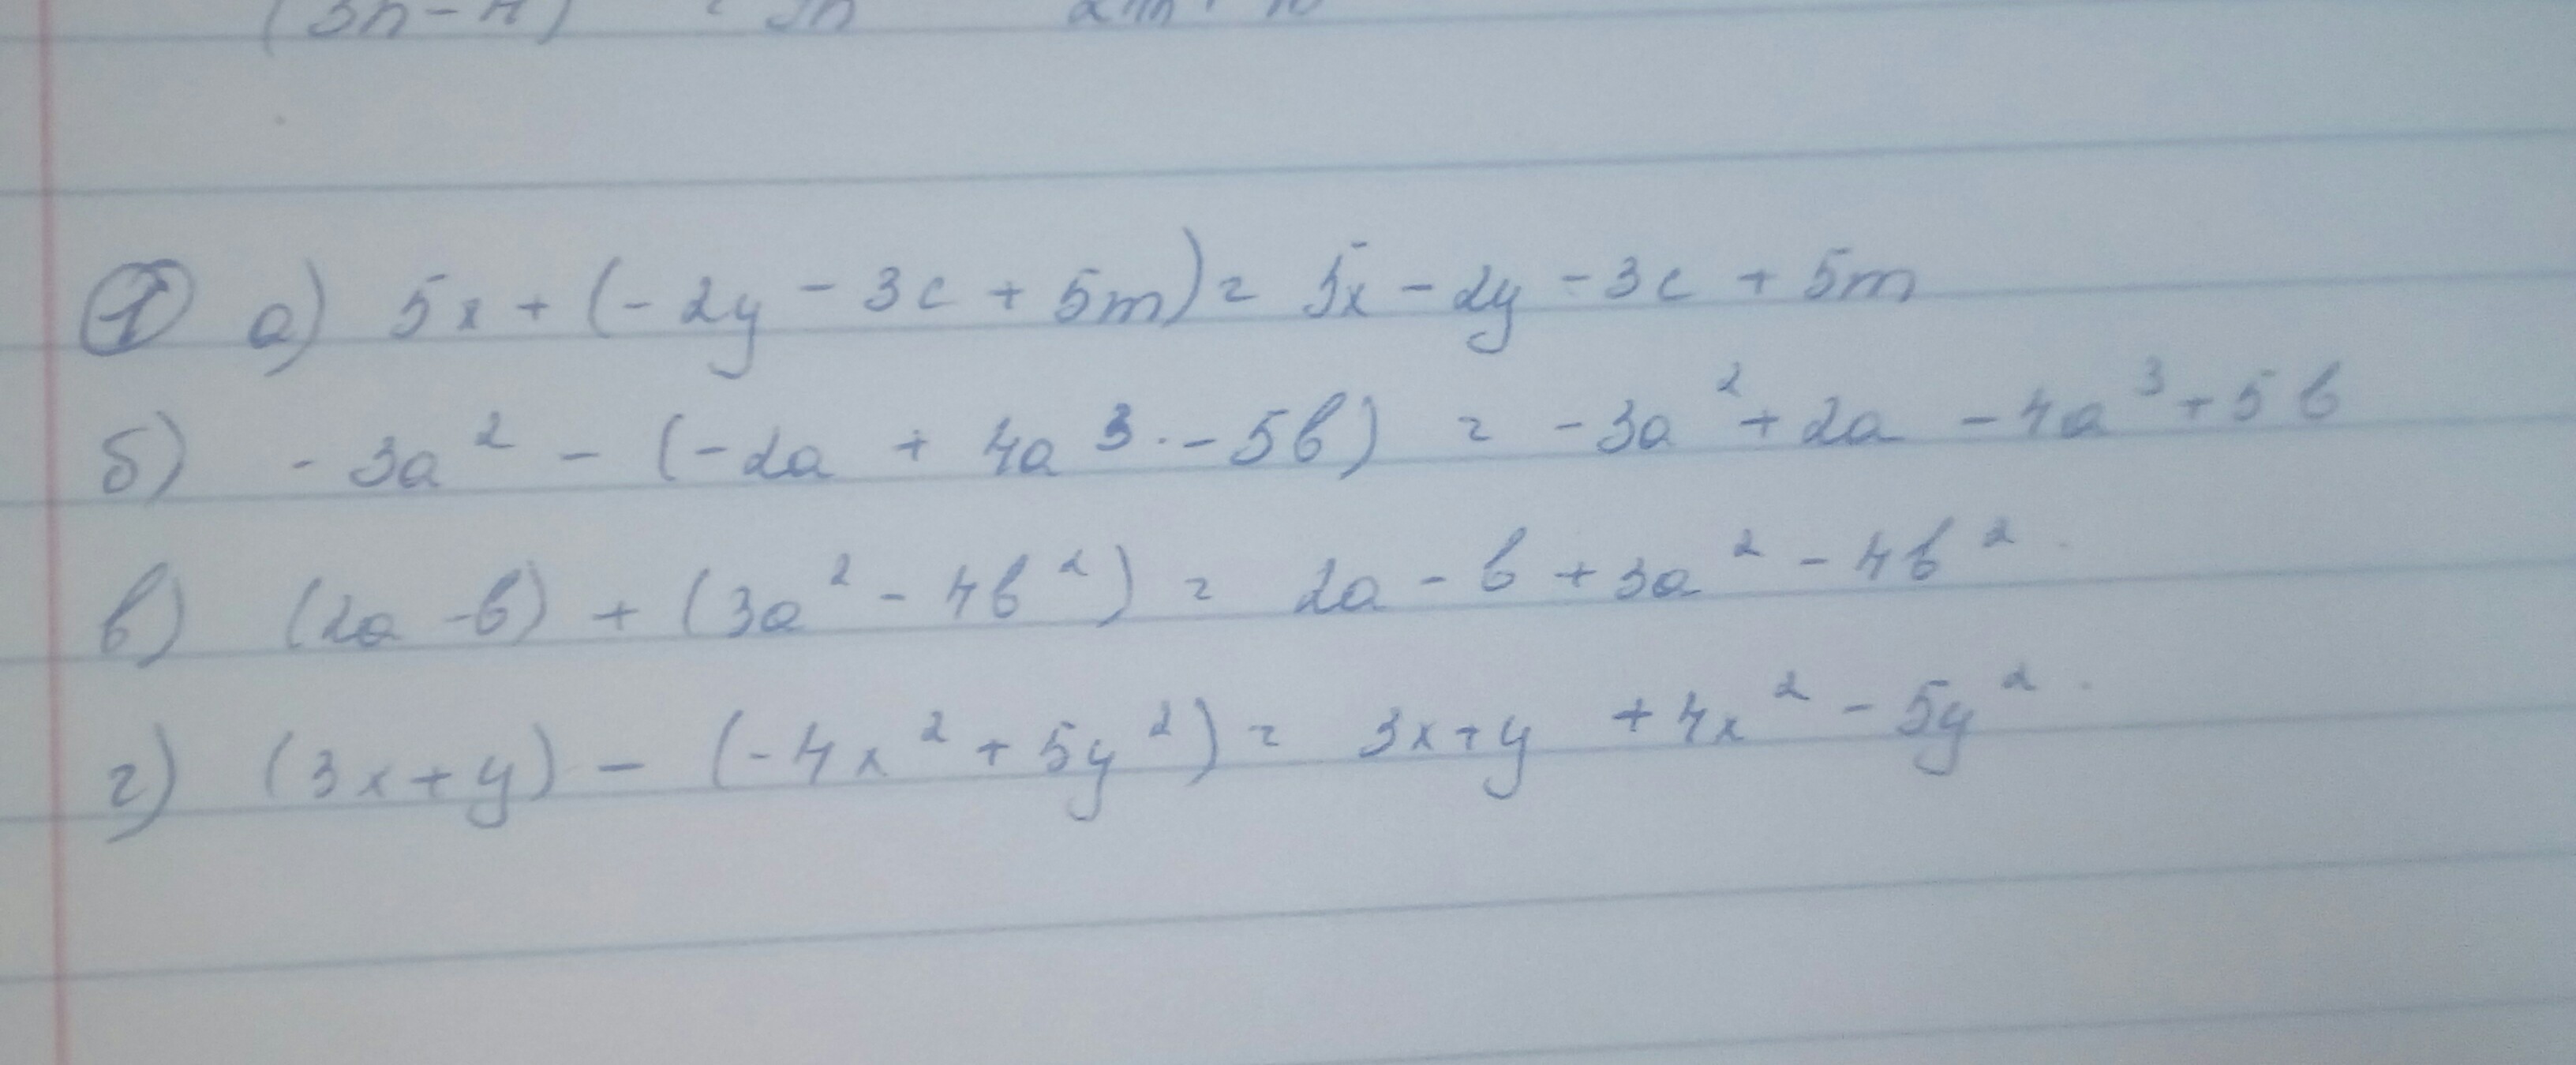 ① а) 5x + (-2y - 3c + 5m) = 5x - 2y - 3c + 5m
б) -3a² - (-2a + 4a³ - 5b) = -3a² + 2a - 4a³ + 5b
в) (2a - b) + (3a² - 4b²) = 2a - b + 3a² - 4b².
г) (3x + y) - (-4x² + 5y²) = 3x + y + 4x² - 5y².